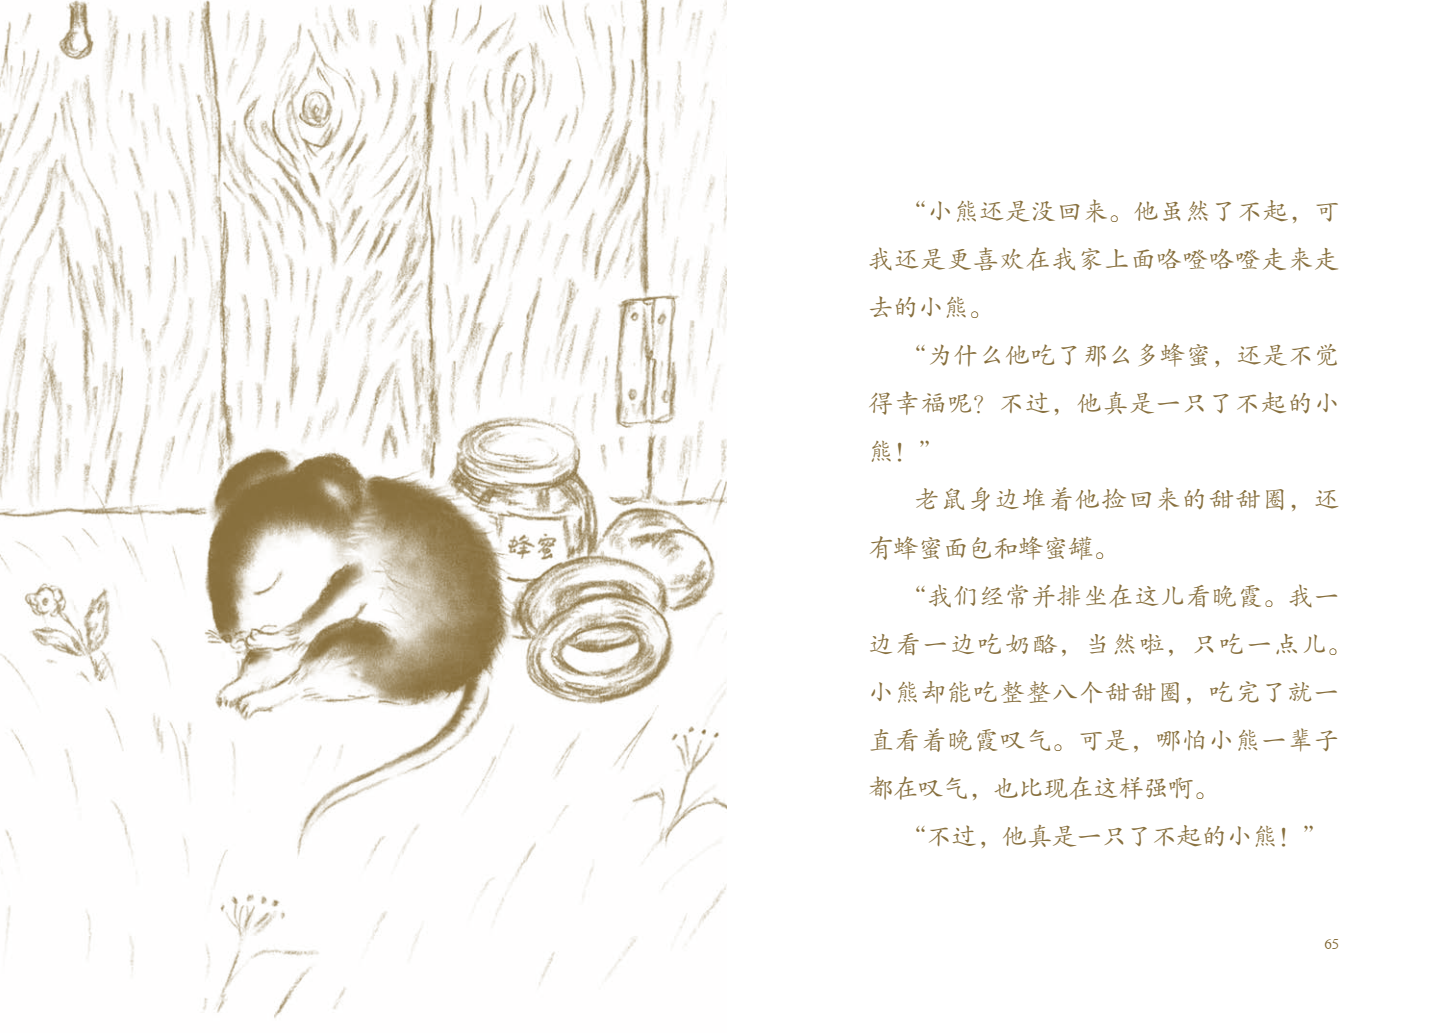 蜂蜜
“小熊还是没回来。他虽然了不起，可
我还是更喜欢在我家上面咯噔咯噔走来走
去的小熊。
“为什么他吃了那么多蜂蜜，还是不觉
得幸福呢？不过，他真是一只了不起的小
熊！”
老鼠身边堆着他捡回来的甜甜圈，还
有蜂蜜面包和蜂蜜罐。
“我们经常并排坐在这儿看晚霞。我一
边看一边吃奶酪，当然啦，只吃一点儿。
小熊却能吃整整八个甜甜圈，吃完了就一
直看着晚霞叹气。可是，哪怕小熊一辈子
都在叹气，也比现在这样强啊。
“不过，他真是一只了不起的小熊！”
65